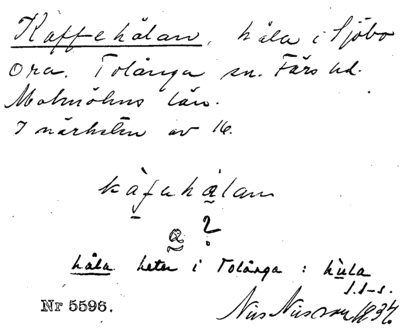 Kaffehålan, håla i Sjöbo
Ora. Tolånga sn. Färs hd.
Malmöhus län.
I närheten av 16.
kafahålan
a ?
håla heter i Tolånga : hula
Nr 5596.
Nils Nilsson 1932.